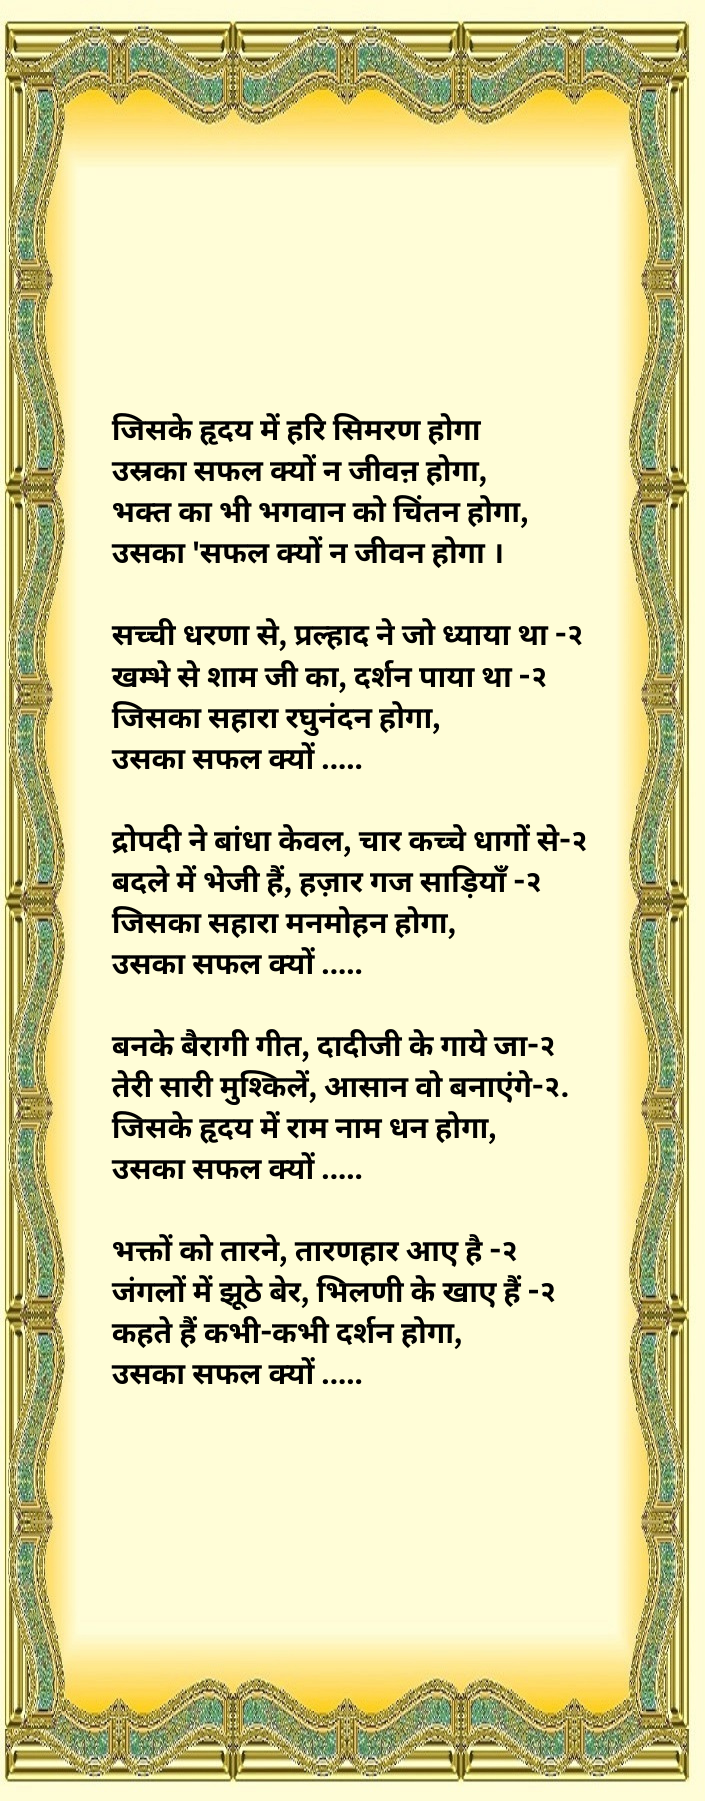 जिसके हृदय में हरि सिमरण होगा
उस्रका सफल क्यों न जीवऩ होगा,
भक्त का भी भगवान को चिंतन होगा,
उसका 'सफल क्यों न जीवन होगा ।
सच्ची धरणा से, प्रल्हाद ने जो ध्याया था -२
खम्भे से शाम जी का, दर्शन पाया था -२
जिसका सहारा रघुनंदन होगा,
उसका सफल क्यों .....
द्रोपदी ने बांधा केवल, चार कच्चे धागों से-२
बदले में भेजी हैं, हज़ार गज साड़ियाँ -२
जिसका सहारा मनमोहन होगा,
उसका सफल क्यों .....
बनके बैरागी गीत, दादीजी के गाये जा-२
तेरी सारी मुश्किलें, आसान वो बनाएंगे-२.
जिसके हृदय में राम नाम धन होगा,
उसका सफल क्यों .....
भक्तों को तारने, तारणहार आए है -२
जंगलों में झूठे बेर, भिलणी के खाए हैं -२
कहते हैं कभी-कभी दर्शन होगा,
उसका सफल क्यों .....